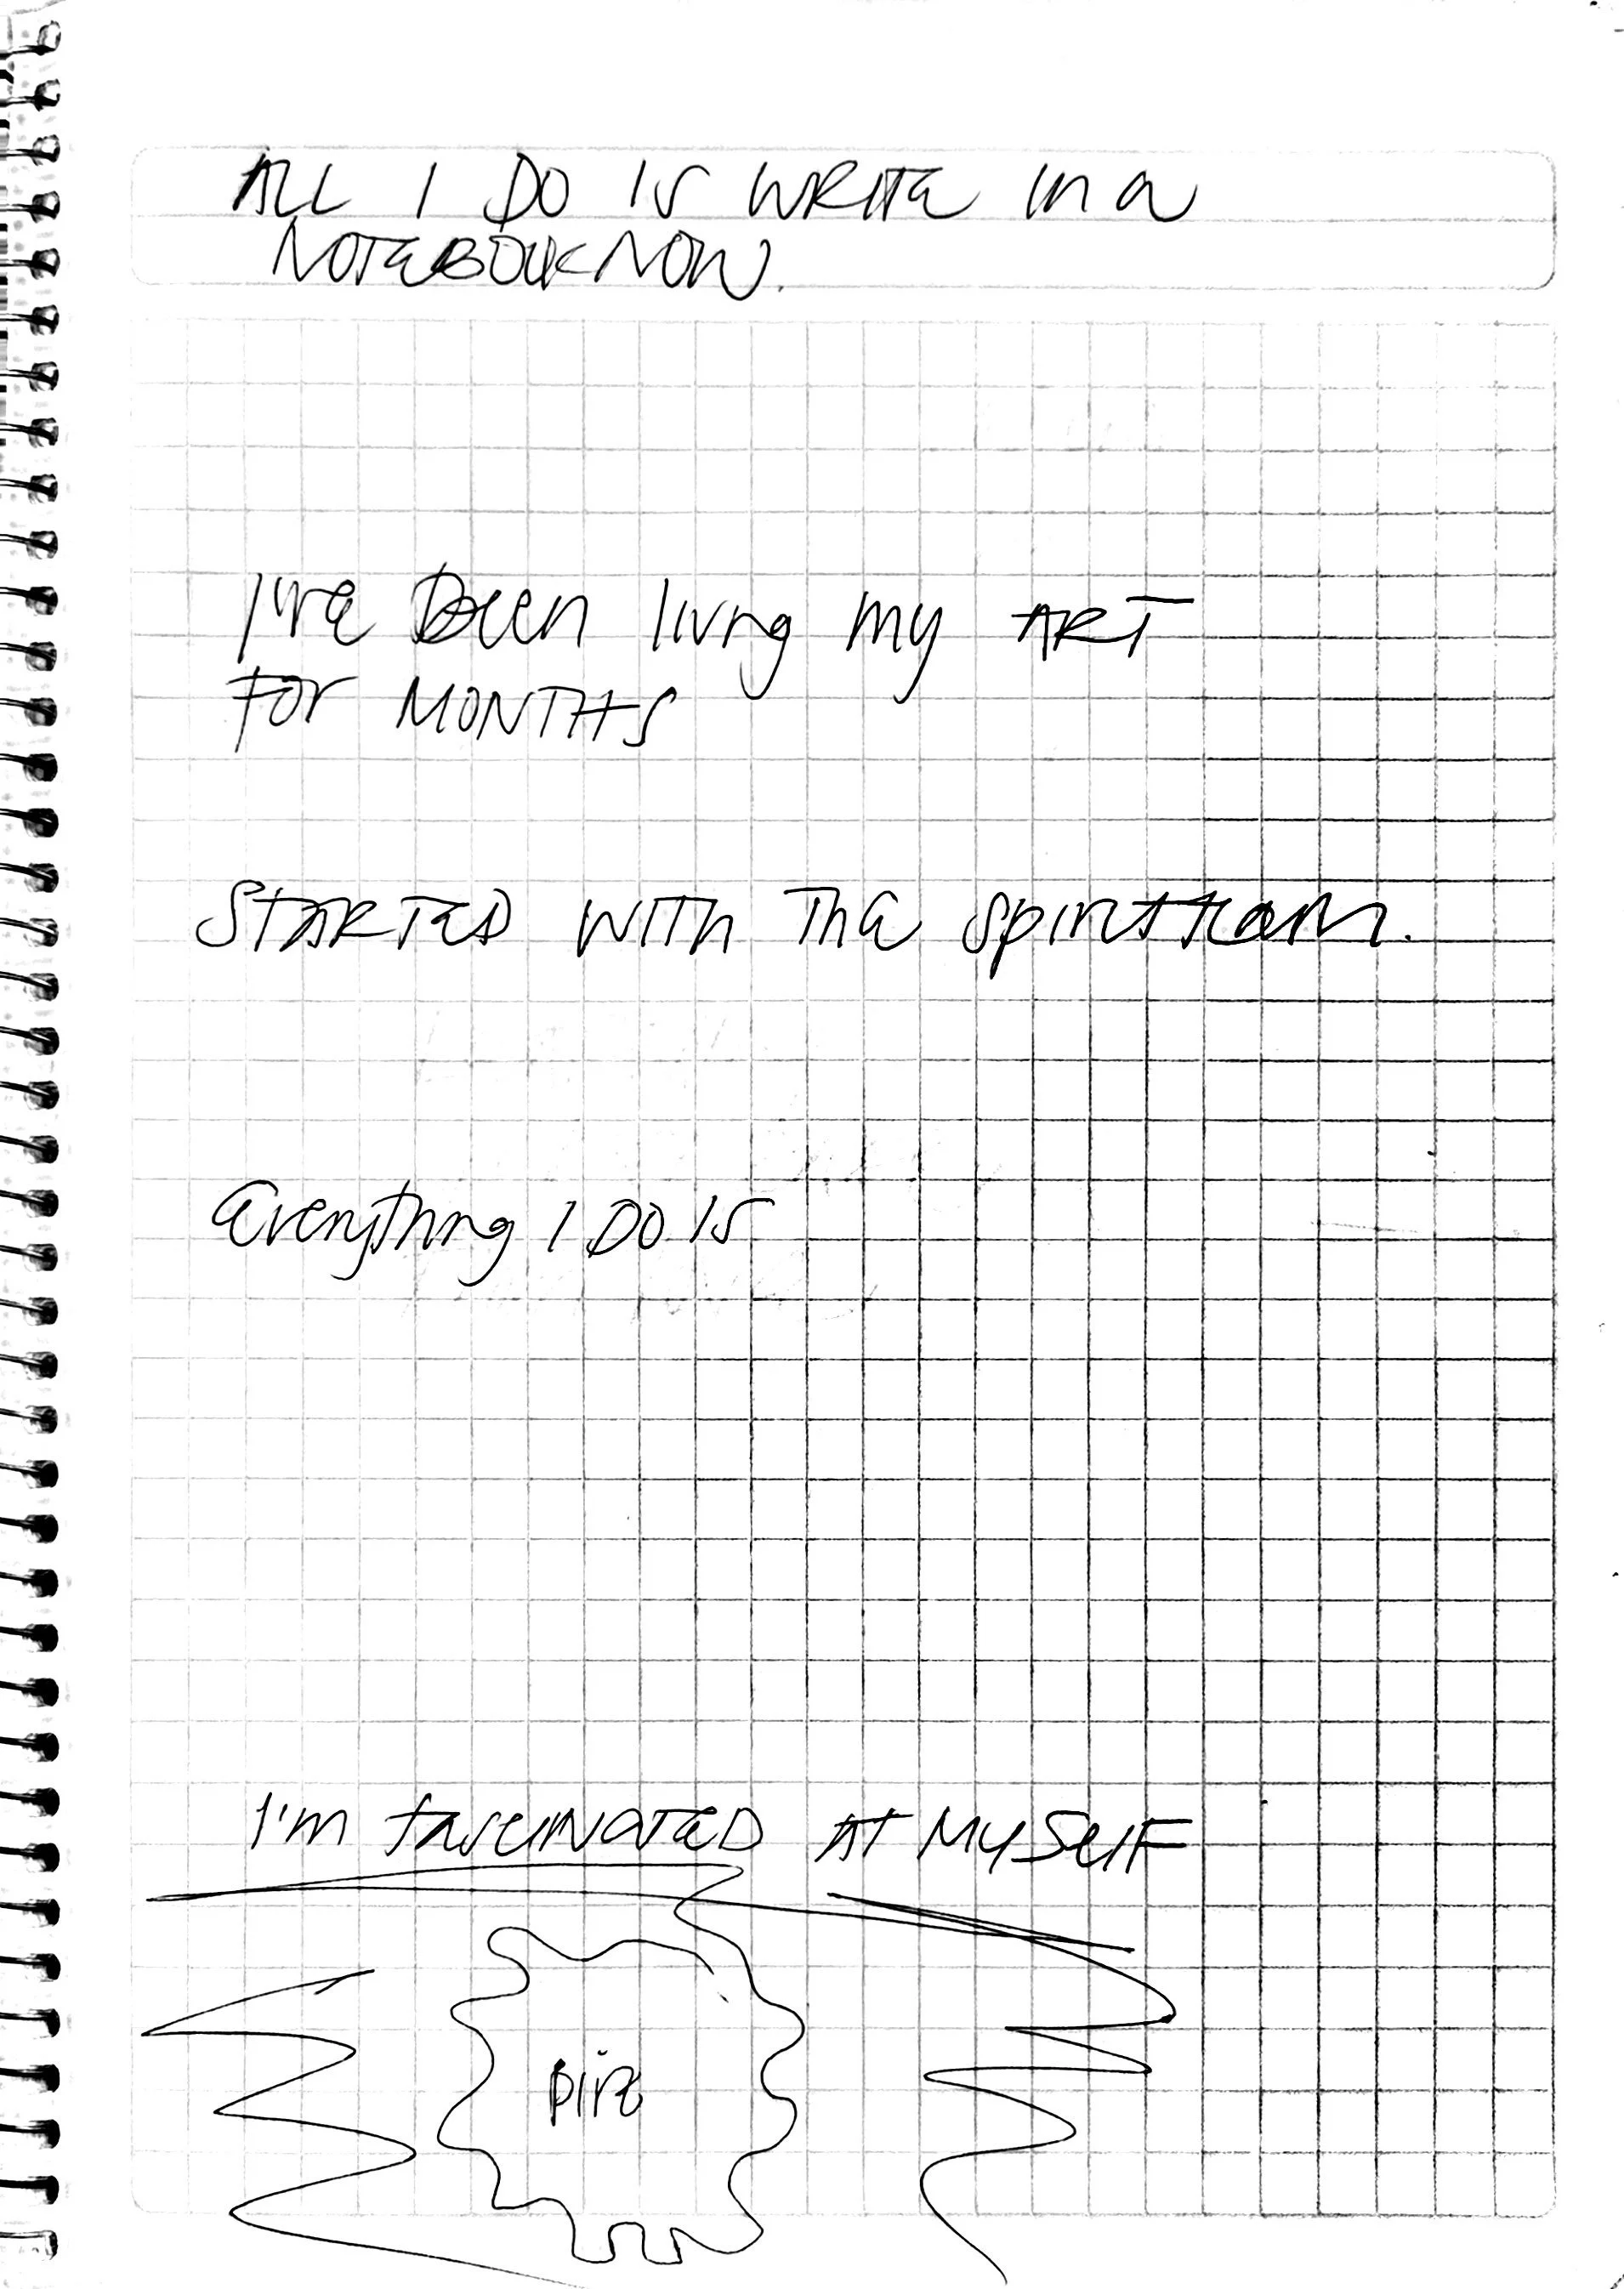 ALL I DO IS WRITE in a
NOTEBOOK NOW.
I've been living my ART
FOR MONTHS
STARTED WITH The
Everything I DO IS
I'm fascinated AT MYSELF